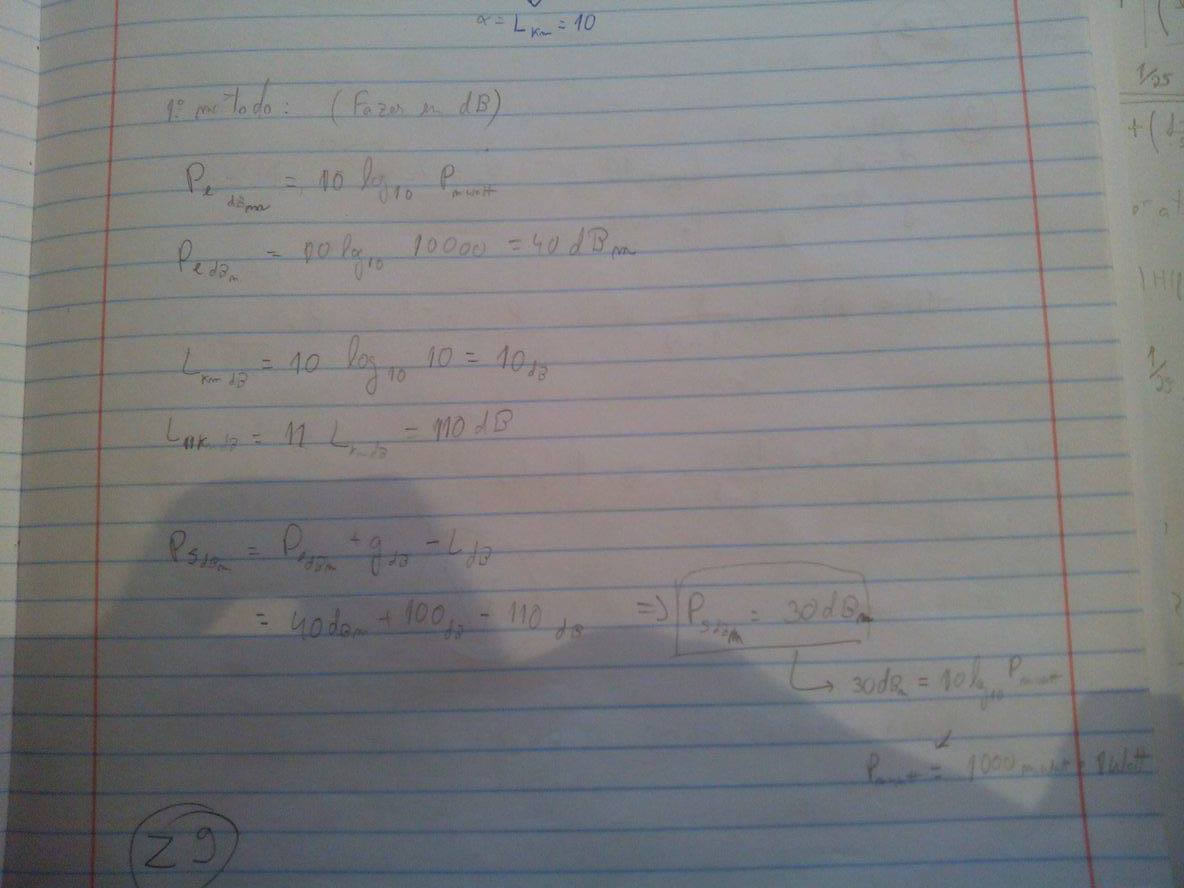 α = L km = 10
1º método: (Fazer em dB)
Pe dBm = 10 log10 P mwatt
Pe dBm = 10 log10 10000 = 40 dBm
L km dB = 10 log10 10 = 10 dB
L 11km dB = 11 L km dB = 110 dB
Ps dBm = Pe dBm + g dB - L dB
= 40 dBm + 100 dB - 110 dB => Ps dBm = 30 dBm
↳ 30 dBm = 10 log10 P mwatt
P mwatt = 1000 mwatt = 1 Watt
29
1/25
+(
1/25